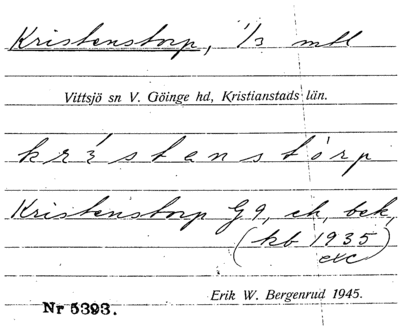 Kristenstorp, 1/3 mtl
Vittsjö sn V. Göinge hd, Kristianstads län.
kristenstòrp
Kristenstorp G9, ek, bek,
(kb 1935)
exc
Erik W. Bergenrud 1945.
Nr 5393.